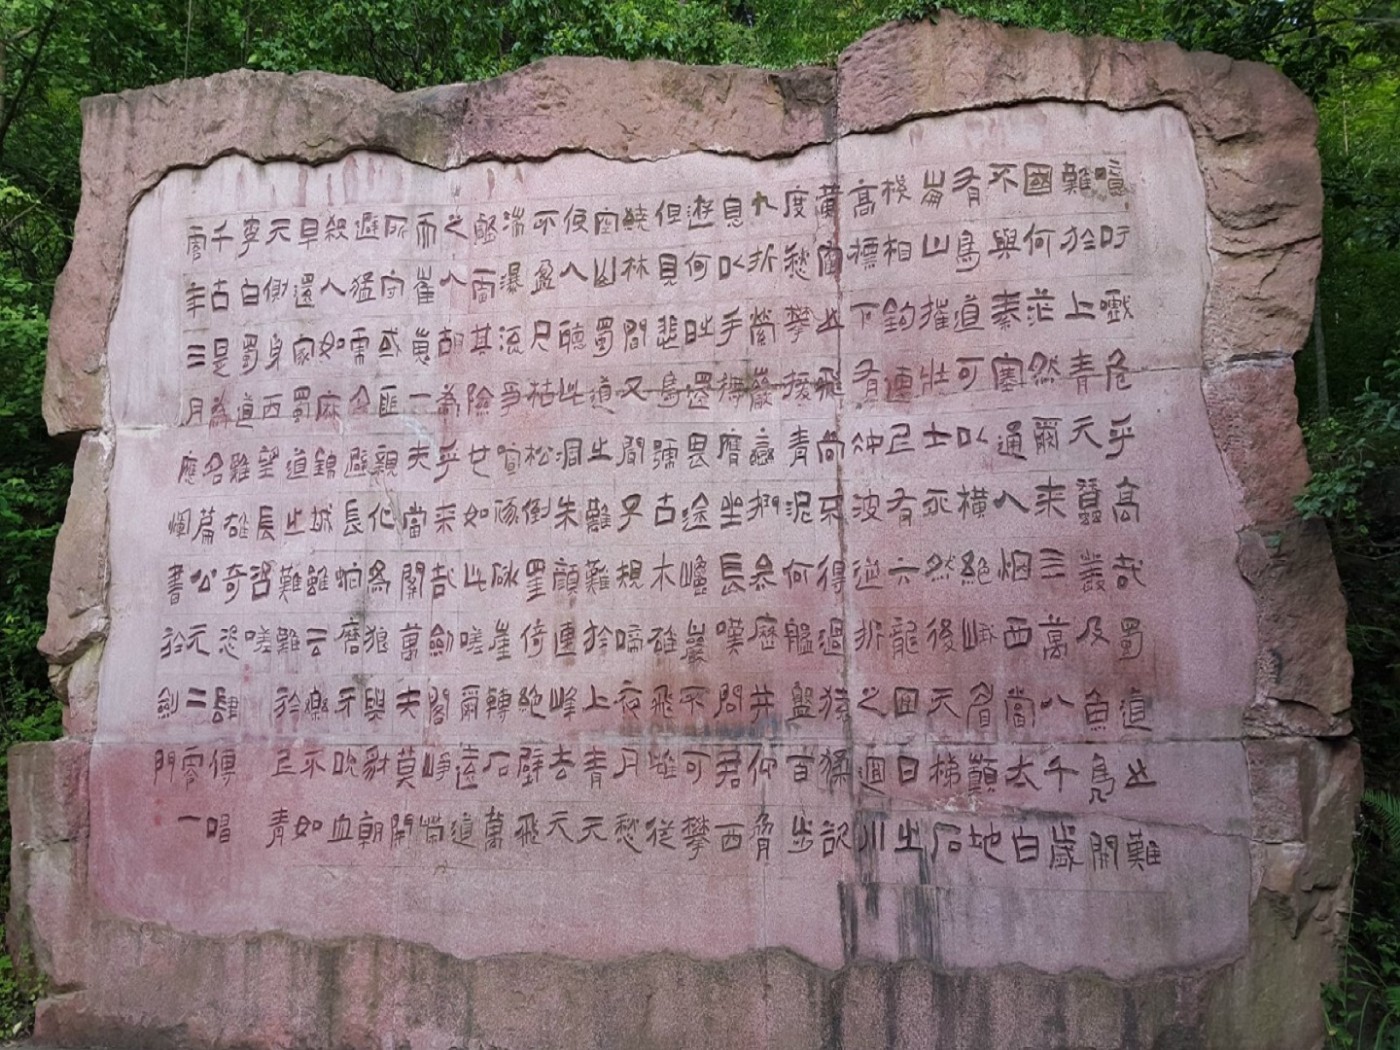 噫吁嚱危乎高哉蜀道之難
難於上青天蠶叢及魚鳧開
國何茫然爾來四萬八千歲
不與秦塞通人烟西當太白
有鳥道可以橫絕峨眉巔地
崩山摧壯士死然後天梯石
棧相鉤連上有六龍回日之
高標下有衝波逆折之迴川
黃鶴之飛尚不得過猿猱欲
度愁攀援青泥何盤盤百步
九折縈巖巒捫參歷井仰脅
息以手撫膺坐長嘆問君西
遊何時還畏途巉巖不可攀
但見悲鳥號古木雄飛雌從
繞林間又聞子規啼夜月愁
空山蜀道之難難於上青天
使人聽此凋朱顏連峰去天
不盈尺枯松倒倚絕壁飛
湍瀑流爭喧豗砯崖轉石萬
壑雷其險也如此嗟爾遠道
之人胡為乎來哉劍閣崢嶸
而崔嵬一夫當關萬夫莫開
所守或匪親化為狼與豺朝
避猛虎夕避長蛇磨牙吮血
殺人如麻錦城雖云樂不如
早還家蜀道之難難於上青
天側身西望長咨嗟
李白蜀道難雄奇恣肆傳唱
千古是為名篇公元二零一
零年三月應煇書於劍門